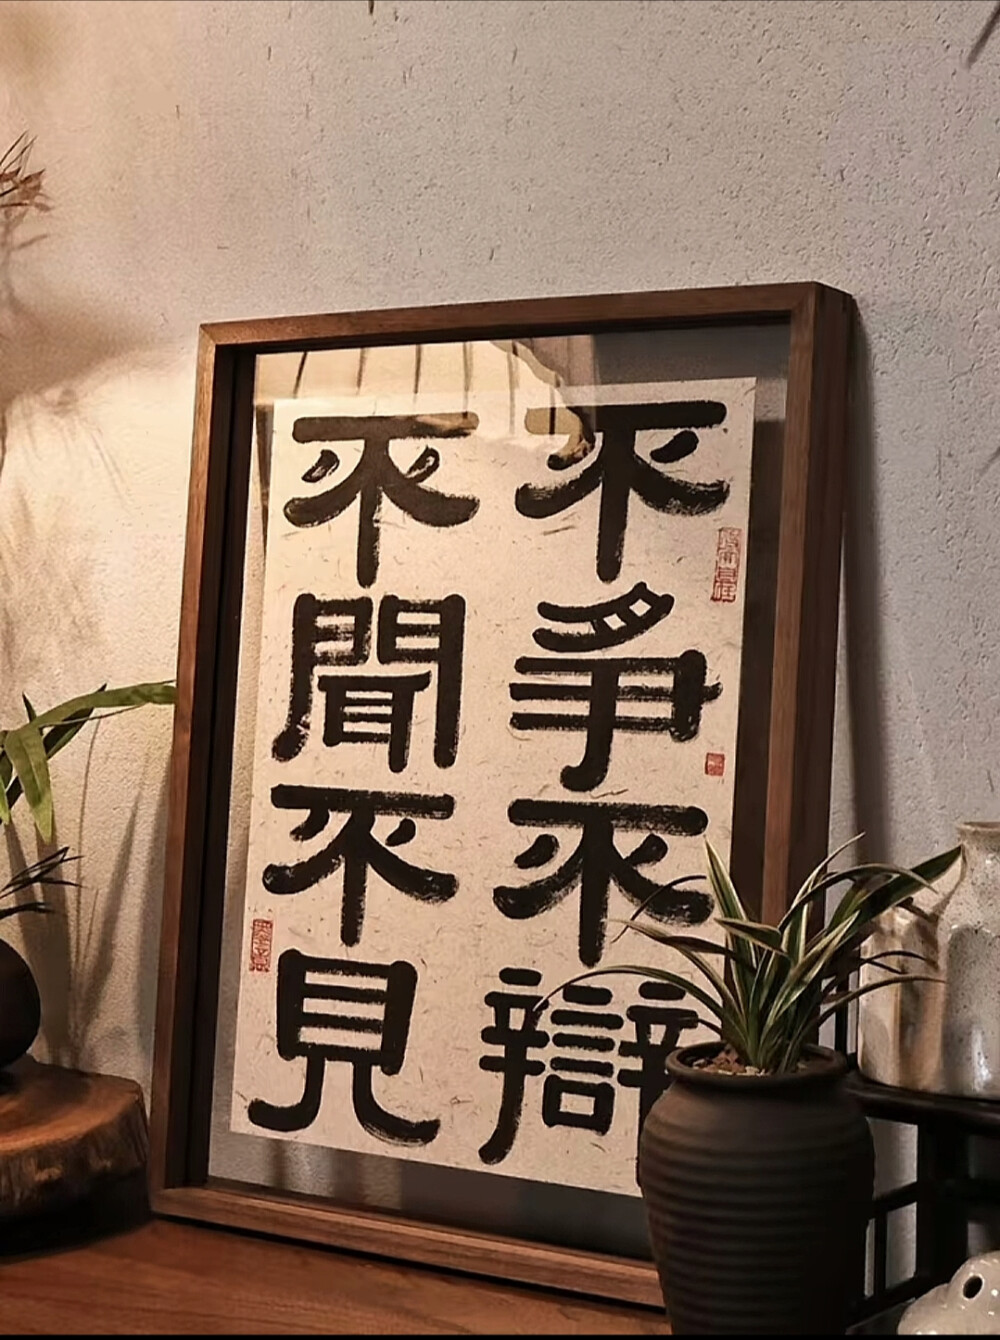 不争不辯
不聞不見